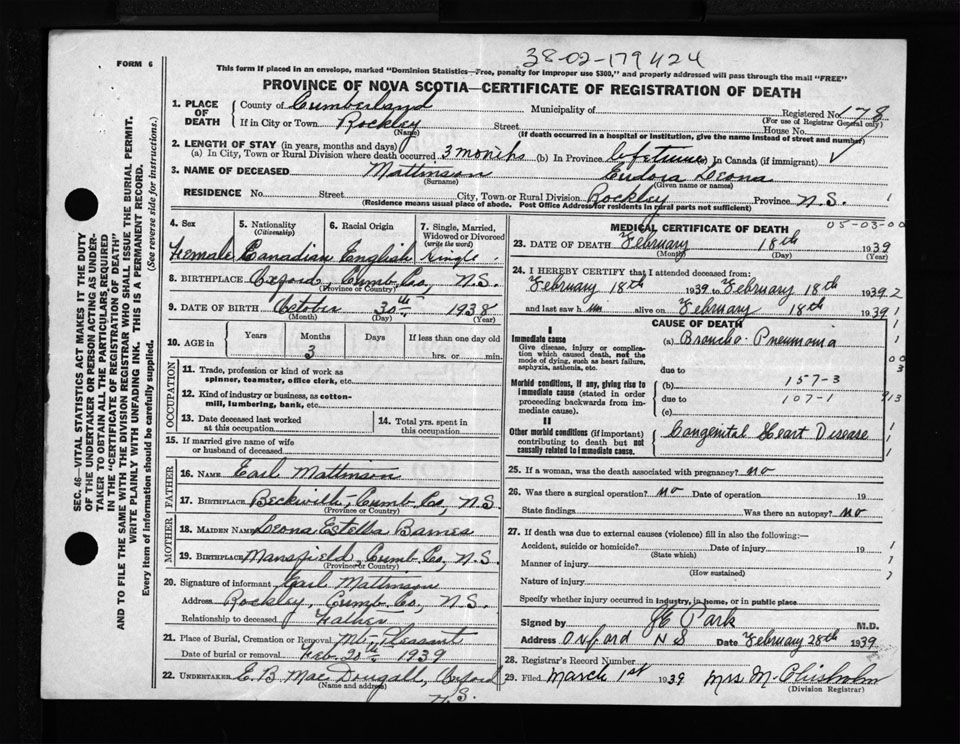 38-02-179424
FORM 6
This form if placed in an envelope, marked "Dominion Statistics—Free, penalty for improper use $300," and properly addressed will pass through the mail "FREE"
PROVINCE OF NOVA SCOTIA—CERTIFICATE OF REGISTRATION OF DEATH
1. PLACE OF DEATH
County of Cumberland Municipality of Registered No. 178
(For use of Registrar General only)
If in City or Town Rockley Street House No.
(Name) (If death occurred in a hospital or institution, give the name instead of street and number)
2. LENGTH OF STAY (in years, months and days)
(a) In City, Town or Rural Division where death occurred 3 months (b) In Province lifetime (c) In Canada (if immigrant) ✓
3. NAME OF DECEASED Mattinson Eudora Leona
(Surname) (Given name or names)
RESIDENCE No. Street City, Town or Rural Division Rockley Province N.S. 1
(Residence means usual place of abode. Post Office Address for residents in rural parts not sufficient)
4. Sex 5. Nationality (Citizenship) 6. Racial Origin 7. Single, Married, Widowed or Divorced (write the word)
Female Canadian English Single
8. BIRTHPLACE Oxford, Cumb. Co., N.S.
(Province or Country)
9. DATE OF BIRTH October 30th 1938
(Month) (Day) (Year)
10. AGE Years Months Days If less than one day old
3 hrs. or min.
OCCUPATION
11. Trade, profession or kind of work as spinner, teamster, office clerk, etc.
12. Kind of industry or business, as cotton-mill, lumbering, bank, etc.
13. Date deceased last worked at this occupation
14. Total yrs. spent in this occupation
15. If married give name of wife or husband of deceased
FATHER
16. NAME Earl Mattinson
17. BIRTHPLACE Beckwith, Cumb. Co., N.S.
(Province or Country)
MOTHER
18. MAIDEN NAME Leona Estella Barnes
19. BIRTHPLACE Mansfield, Cumb. Co., N.S.
(Province or Country)
20. Signature of informant Earl Mattinson
Address Rockley, Cumb. Co., N.S.
Relationship to deceased Father
21. Place of Burial, Cremation or Removal Mt. Pleasant
Date of burial or removal Feb. 20th 1939
22. UNDERTAKER E. B. Mac Dougall, Oxford
(Name and address) N.S.
MEDICAL CERTIFICATE OF DEATH 05-03-00
23. DATE OF DEATH February 18th 1939
(Month) (Day) (Year)
24. I HEREBY CERTIFY that I attended deceased from:
February 18th 1939 to February 18th 1939
and last saw h im alive on February 18th 1939
CAUSE OF DEATH
I
Immediate cause
Give disease, injury or complication which caused death, not the mode of dying, such as heart failure, asphyxia, asthenia, etc.
(a) Broncho-Pneumonia
due to
Morbid conditions, if any, giving rise to immediate cause (stated in order proceeding backwards from immediate cause).
(b) 157-3
due to 107-1
(c)
II
Other morbid conditions (if important) contributing to death but not causally related to immediate cause.
Congenital Heart Disease
25. If a woman, was the death associated with pregnancy? no
26. Was there a surgical operation? no Date of operation 19
State findings Was there an autopsy? no
27. If death was due to external causes (violence) fill in also the following:—
Accident, suicide or homicide? Date of injury 19
(State which)
Manner of injury
(How sustained)
Nature of injury
Specify whether injury occurred in industry, in home, or in public place
Signed by Park M.D.
Address Oxford N S Date February 28th 1939
28. Registrar's Record Number
29. Filed March 1st 1939 Mrs M. Chisholm
(Division Registrar)
SEC. 46—VITAL STATISTICS ACT MAKES IT THE DUTY
OF THE UNDERTAKER OR PERSON ACTING AS UNDER-
TAKER TO OBTAIN ALL THE PARTICULARS REQUIRED
IN THE "CERTIFICATE OF REGISTRATION OF DEATH"
AND TO FILE THE SAME WITH THE DIVISION REGISTRAR WHO SHALL ISSUE THE BURIAL PERMIT.
WRITE PLAINLY WITH UNFADING INK. THIS IS A PERMANENT RECORD.
Every item of information should be carefully supplied. (See reverse side for instructions.)